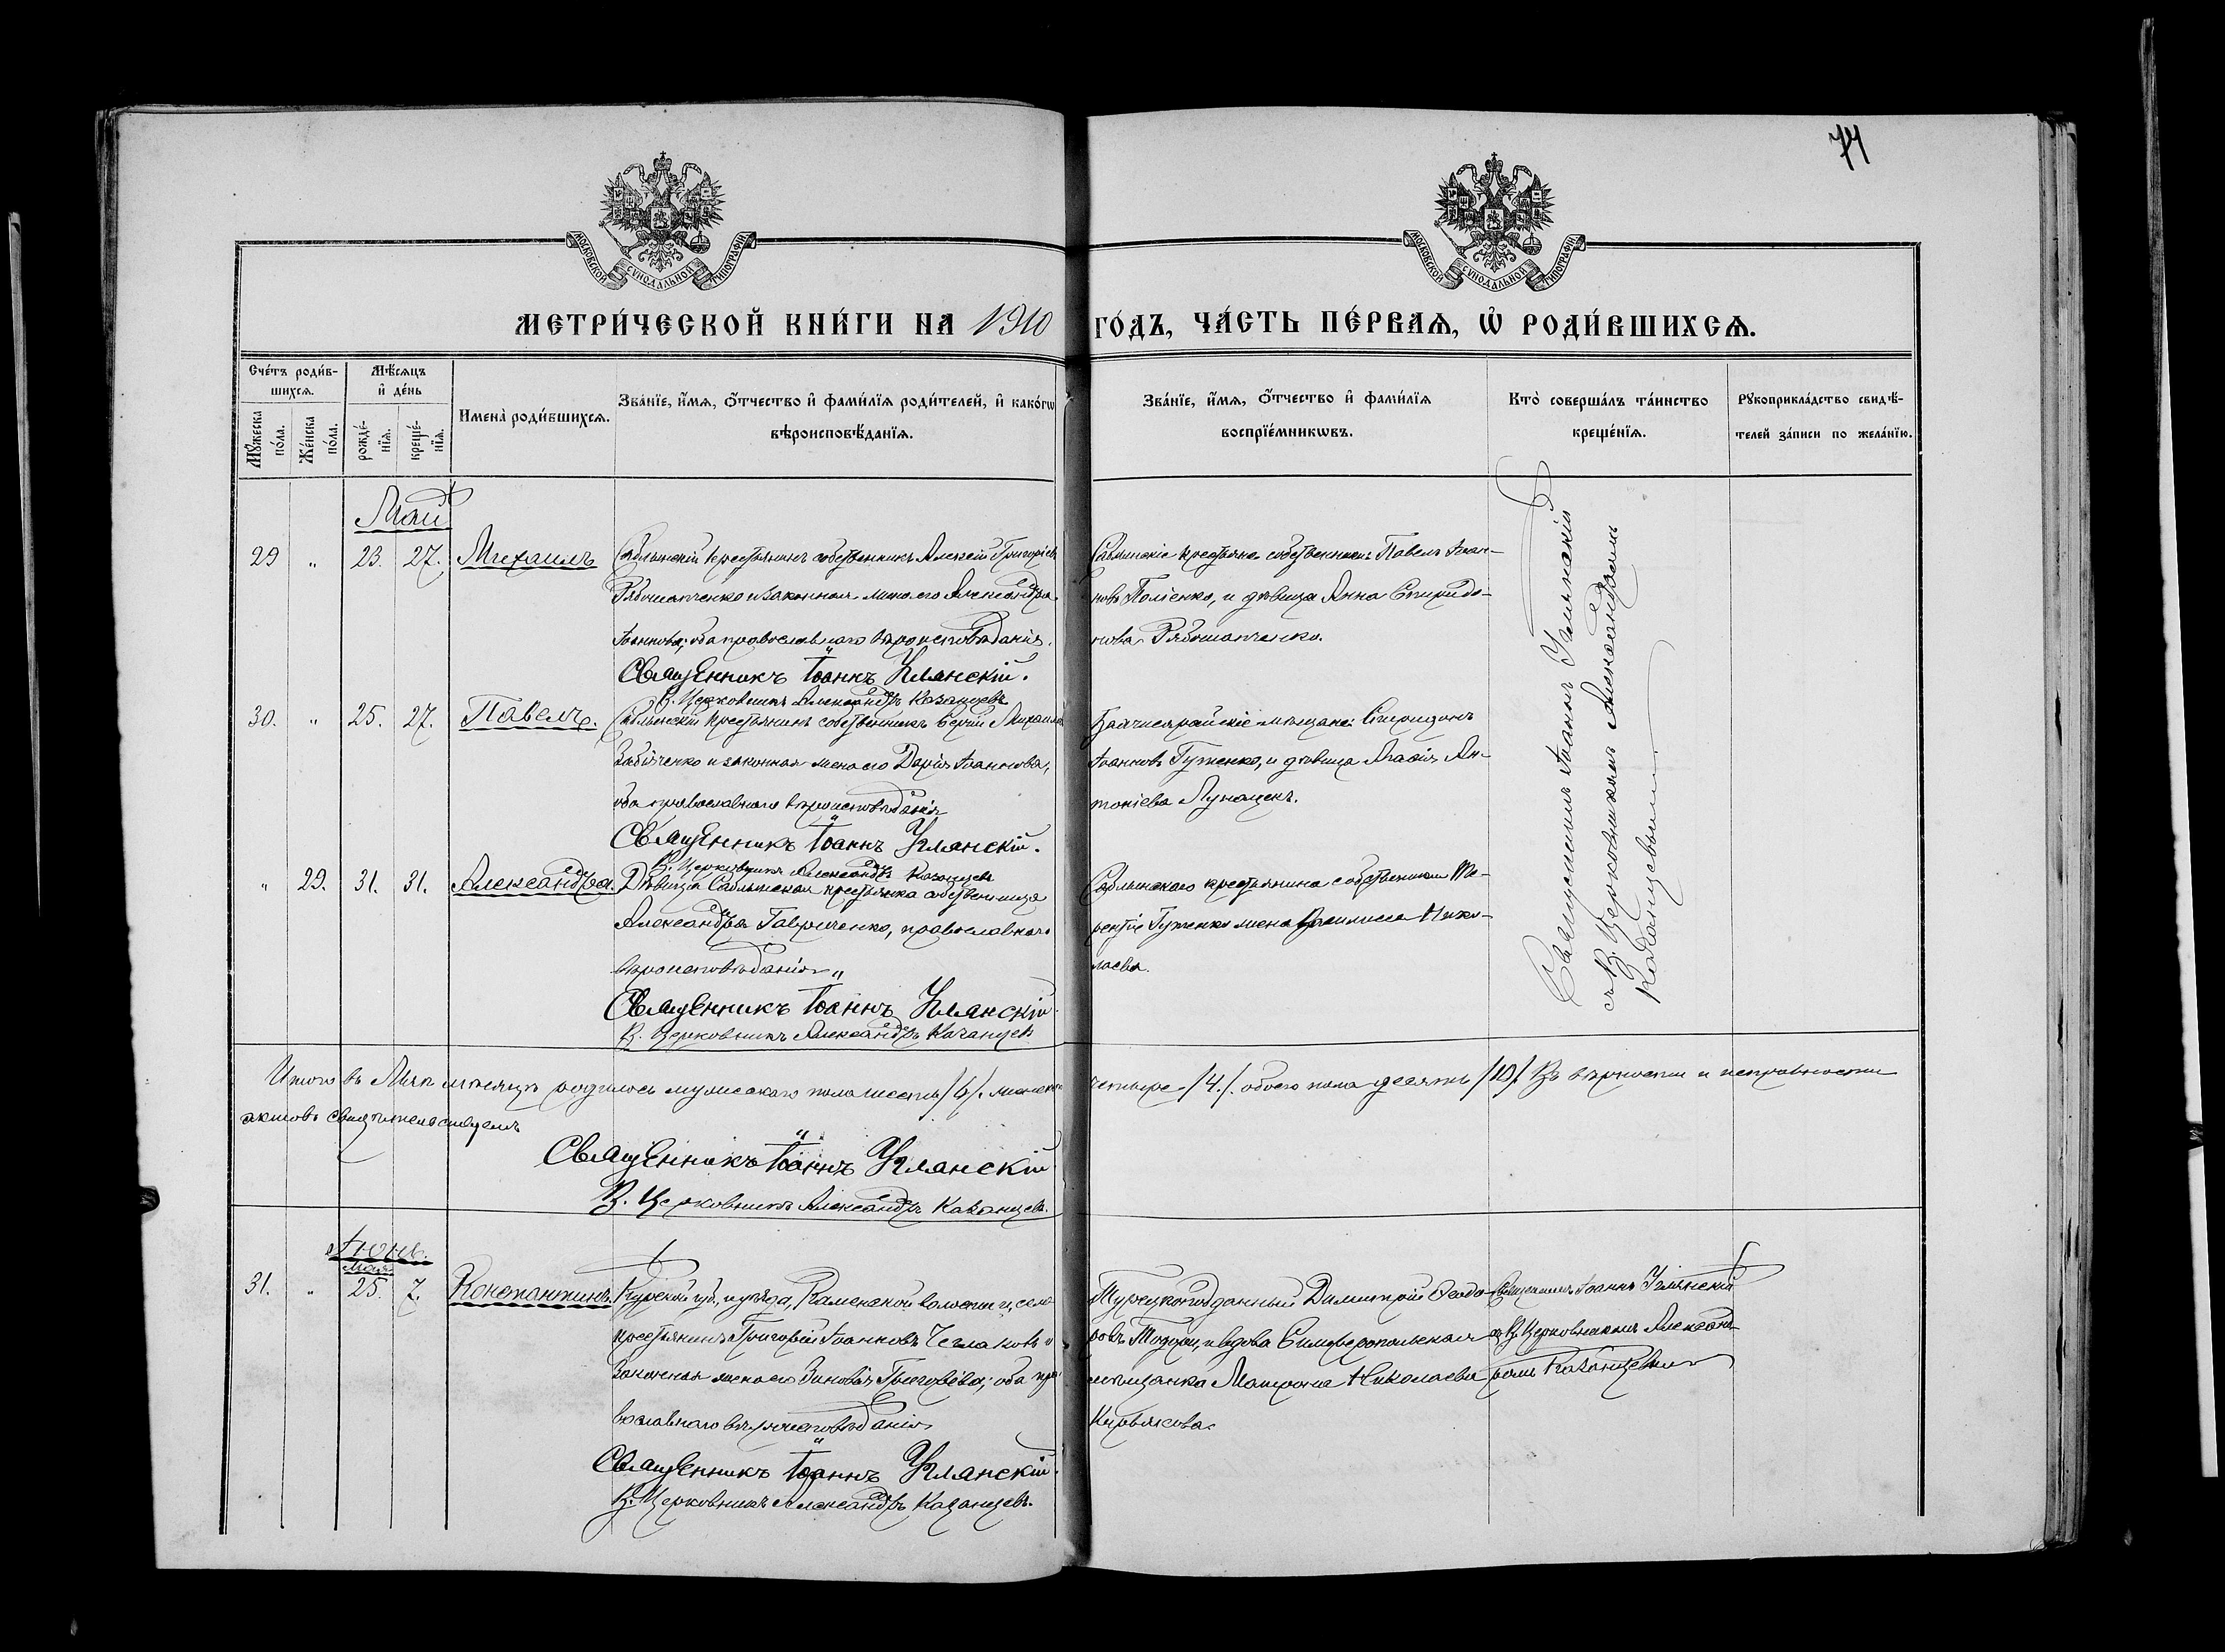 74
МОСКОВСКОЙ СѴНОДАЛЬНОЙ ТИПОГРАФІИ
МОСКОВСКОЙ СѴНОДАЛЬНОЙ ТИПОГРАФІИ
МЕТРИ́ЧЕСКОЙ КНИ́ГИ НА 1910 ГО́ДЪ, ЧА́СТЬ ПЕ́РВАѦ, Ѡ҆ РОДИ́ВШИХСѦ.
Сче́тъ роди́в-
шихсѧ.
Мꙋ́жеска по́ла.
Же́нска по́ла.
Мѣ́сѧцъ
и҆ де́нь
рожде́-нїѧ.
креще́-нїѧ.
Имена̀ роди́вшихсѧ.
Зва́нїе, и҆́мѧ, ѻ҆́тчество и҆ фами́лїѧ роди́телей, и҆ како́гѡ
вѣроисповѣ́данїѧ.
Зва́нїе, и҆́мѧ, ѻ҆́тчество и҆ фами́лїѧ
воспрїе́мникѡвъ.
Кто̀ соверша́лъ та́инство
креще́нїѧ.
Рꙋкоприкла́дство свидѣ́-
телей за́писи по жела́нїю.
Май
29 " 23. 27. Михаилъ
Саблынскій крестьянинъ собственникъ Алексій Григоріевъ
Рябошапченко и законная жена его Александра
Іоаннова; оба православнаго вѣроисповѣданія.
Священникъ Іоаннъ Углянскій.
В. Церковникъ Александръ Казанцевъ
Саблынскіе крестьяне собственники Павелъ Іоан-
новъ Поліенко, и дѣвица Анна Спиридо-
нова Рябошапченко.
30. " 25. 27. Павелъ.
Саблынскій крестьянинъ собственникъ Сергій Михаиловъ
и законная жена его Дарія Іоаннова,
оба православнаго вѣроисповѣданія
Священникъ Іоаннъ Углянскій.
В. Церковникъ Александръ Казанцевъ
мѣщане: Спиридонъ
Іоанновъ Гуженко, и дѣвица Агафія Ан-
тоніева
" 29. 31. 31. Александра.
Дѣвица Саблынская крестьянка собственница
Александра Гавриченко, православнаго
вѣроисповѣданія "
Священникъ Іоаннъ Углянскій
В. Церковникъ Александръ Казанцевъ
Саблынскаго крестьянина собственника Те-
рентіе Гуженко жена Василисса Нико-
лаева.
Священникъ Іоаннъ Углянскій
съ В. Церковникомъ Александромъ
Казанцевымъ
Итого въ Маѣ мѣсяцѣ родилось мужескаго пола шесть /6/. женска
четыре /4/. обоего пола десять /10/. Въ вѣрности и исправности
актовъ свидѣтельствуемъ
Священникъ Іоаннъ Углянскій
В. Церковникъ Александръ Казанцевъ.
Іюнь.
Мая
31. " 25. 7. Константинъ.
Курской губ., и уѣзда, Каменской волости и, села
крестьянинъ Григорій Іоанновъ Чеглаковъ и
законная жена его Зиновія Григорьева; оба пра-
вославнаго вѣроисповѣданія
Священникъ Іоаннъ Углянскій.
В. Церковникъ Александръ Казанцевъ.
Турецкоподданный Димитрій Ѳеодо-
ровъ Тодори, и вдова Симферопольская
мѣщанка Матрона Николаева
Кирьякова.
Священникъ Іоаннъ Углянскій
съ В. Церковникомъ Алексан-
дромъ Казанцевымъ